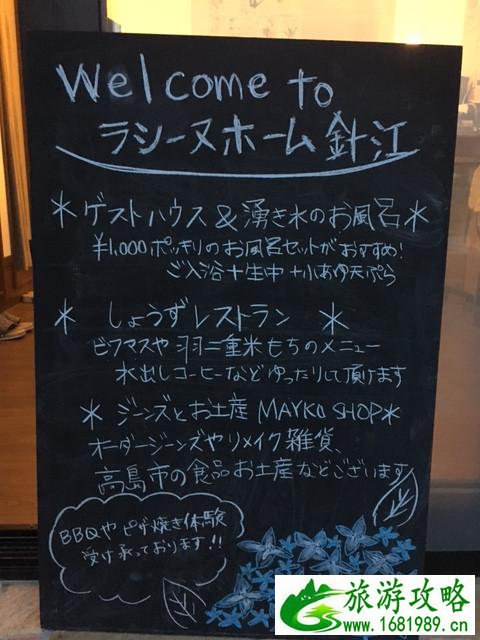 Welcome to
ラシーヌホーム 針江
＊ゲストハウス＆湧き水のお風呂＊
¥1,000ポッキリのお風呂セットがおすすめ!
ご入浴＋生中＋小あゆ天ぷら
＊ しょうずレストラン ＊
ビワマスや羽二重米もちのメニュー
水出しコーヒーなどゆったりして頂けます
＊ジーンズとお土産 MAYKO SHOP＊
オーダージーンズやリメイク雑貨、
高島市の食品お土産などございます
BBQやピザ焼き体験
受け承っております!!
旅游攻略
www.1681989.cn